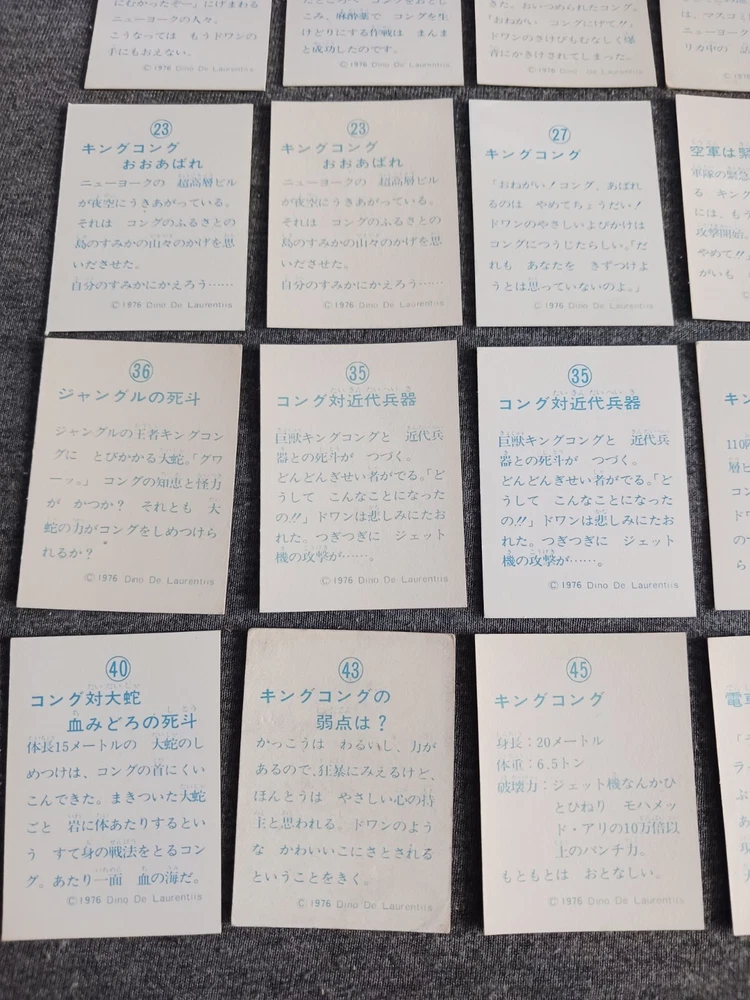 にむかったぞー」にげまわる
ニューヨークの人々。
こうなっては もうドワンの
手にもおえない。
© 1976 Dino De Laurentiis
こみ、麻酔薬で コングを生
けどりにする作戦は まんま
と成功したのです。
© 1976 Dino De Laurentiis
きた。おいつめられたコング。
「おねがい コングにげて!!」
ドワンのさけびもむなしく爆
音にかきけされてしまった。
© 1976 Dino De Laurentiis
は、マスコミ
ニューヨーク
リカ中の 話
© 1976
㉓
キングコング
おおあばれ
ニューヨークの 超高層ビル
が夜空にうきあがっている。
それは コングのふるさとの
島のすみかの山々のかげを思
いださせた。
自分のすみかにかえろう……
© 1976 Dino De Laurentiis
㉓
キングコング
おおあばれ
ニューヨークの 超高層ビル
が夜空にうきあがっている。
それは コングのふるさとの
島のすみかの山々のかげを思
いださせた。
自分のすみかにかえろう……
© 1976 Dino De Laurentiis
㉗
キングコング
「おねがい!コング、あばれ
るのは やめてちょうだい!
ドワンのやさしいよびかけは
コングにつうじたらしい。「だ
れも あなたを きずつけよ
うとは思っていないのよ。」
© 1976 Dino De Laurentiis
空軍は緊
軍隊の緊急
る キング
には、もう
攻撃開始。
やめて!!」
がいも
© 1976
㊱
ジャングルの死斗
ジャングルの王者キングコン
グに とびかかる大蛇。「グワ
ーッ。」 コングの知恵と怪力
が かつか? それとも 大
蛇の力がコングをしめつけら
れるか?
© 1976 Dino De Laurentiis
㉟
コング対近代兵器
巨獣キングコングと 近代兵
器との死斗が つづく。
どんどんぎせい者がでる。「ど
うして こんなことになった
の!!」ドワンは悲しみにたお
れた。つぎつぎに ジェット
機の攻撃が……。
© 1976 Dino De Laurentiis
㉟
コング対近代兵器
巨獣キングコングと 近代兵
器との死斗が つづく。
どんどんぎせい者がでる。「ど
うして こんなことになった
の!!」ドワンは悲しみにたお
れた。つぎつぎに ジェット
機の攻撃が……。
© 1976 Dino De Laurentiis
キン
110
層ビ
コン
ドワ
ので
ら
㊵
コング対大蛇
血みどろの死斗
体長15メートルの 大蛇のし
めつけは、コングの首にくい
こんできた。まきついた大蛇
ごと 岩に体あたりするとい
う すて身の戦法をとるコン
グ。あたり一面 血の海だ。
© 1976 Dino De Laurentiis
㊸
キングコングの
弱点は?
かっこうは わるいし、力が
あるので、狂暴にみえるけど、
ほんとうは やさしい心の持
主と思われる。ドワンのよう
な かわいいこにさとされる
ということをきく。
© 1976 Dino De Laurentiis
㊺
キングコング
身長:20メートル
体重:6.5トン
破壊力:ジェット機なんかひ
とひねり モハメッ
ド・アリの10万倍以
上のパンチ力。
もともとは おとなしい。
© 1976 Dino De Laurentiis
電車
ライ
ぶ
あ
る